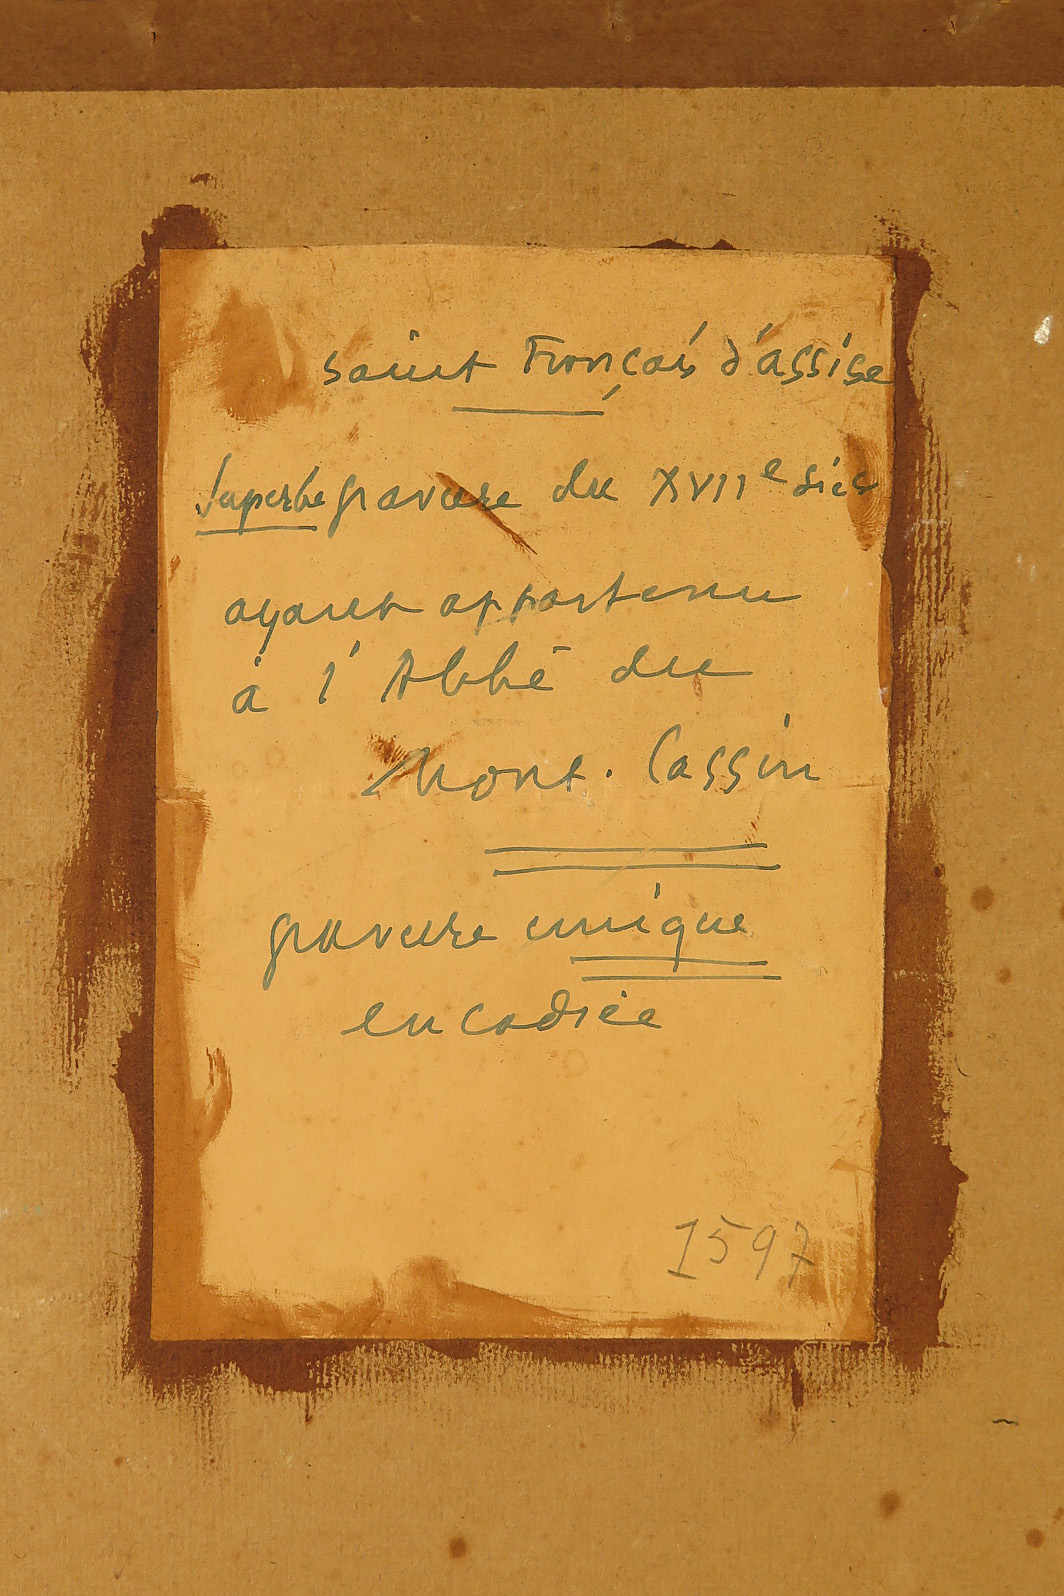 saint François d'assise
superbe gravure du XVIIe sièc
ayant appartenu
à l'Abbé du
Mont. Cassin
gravure unique
encadrée
1597